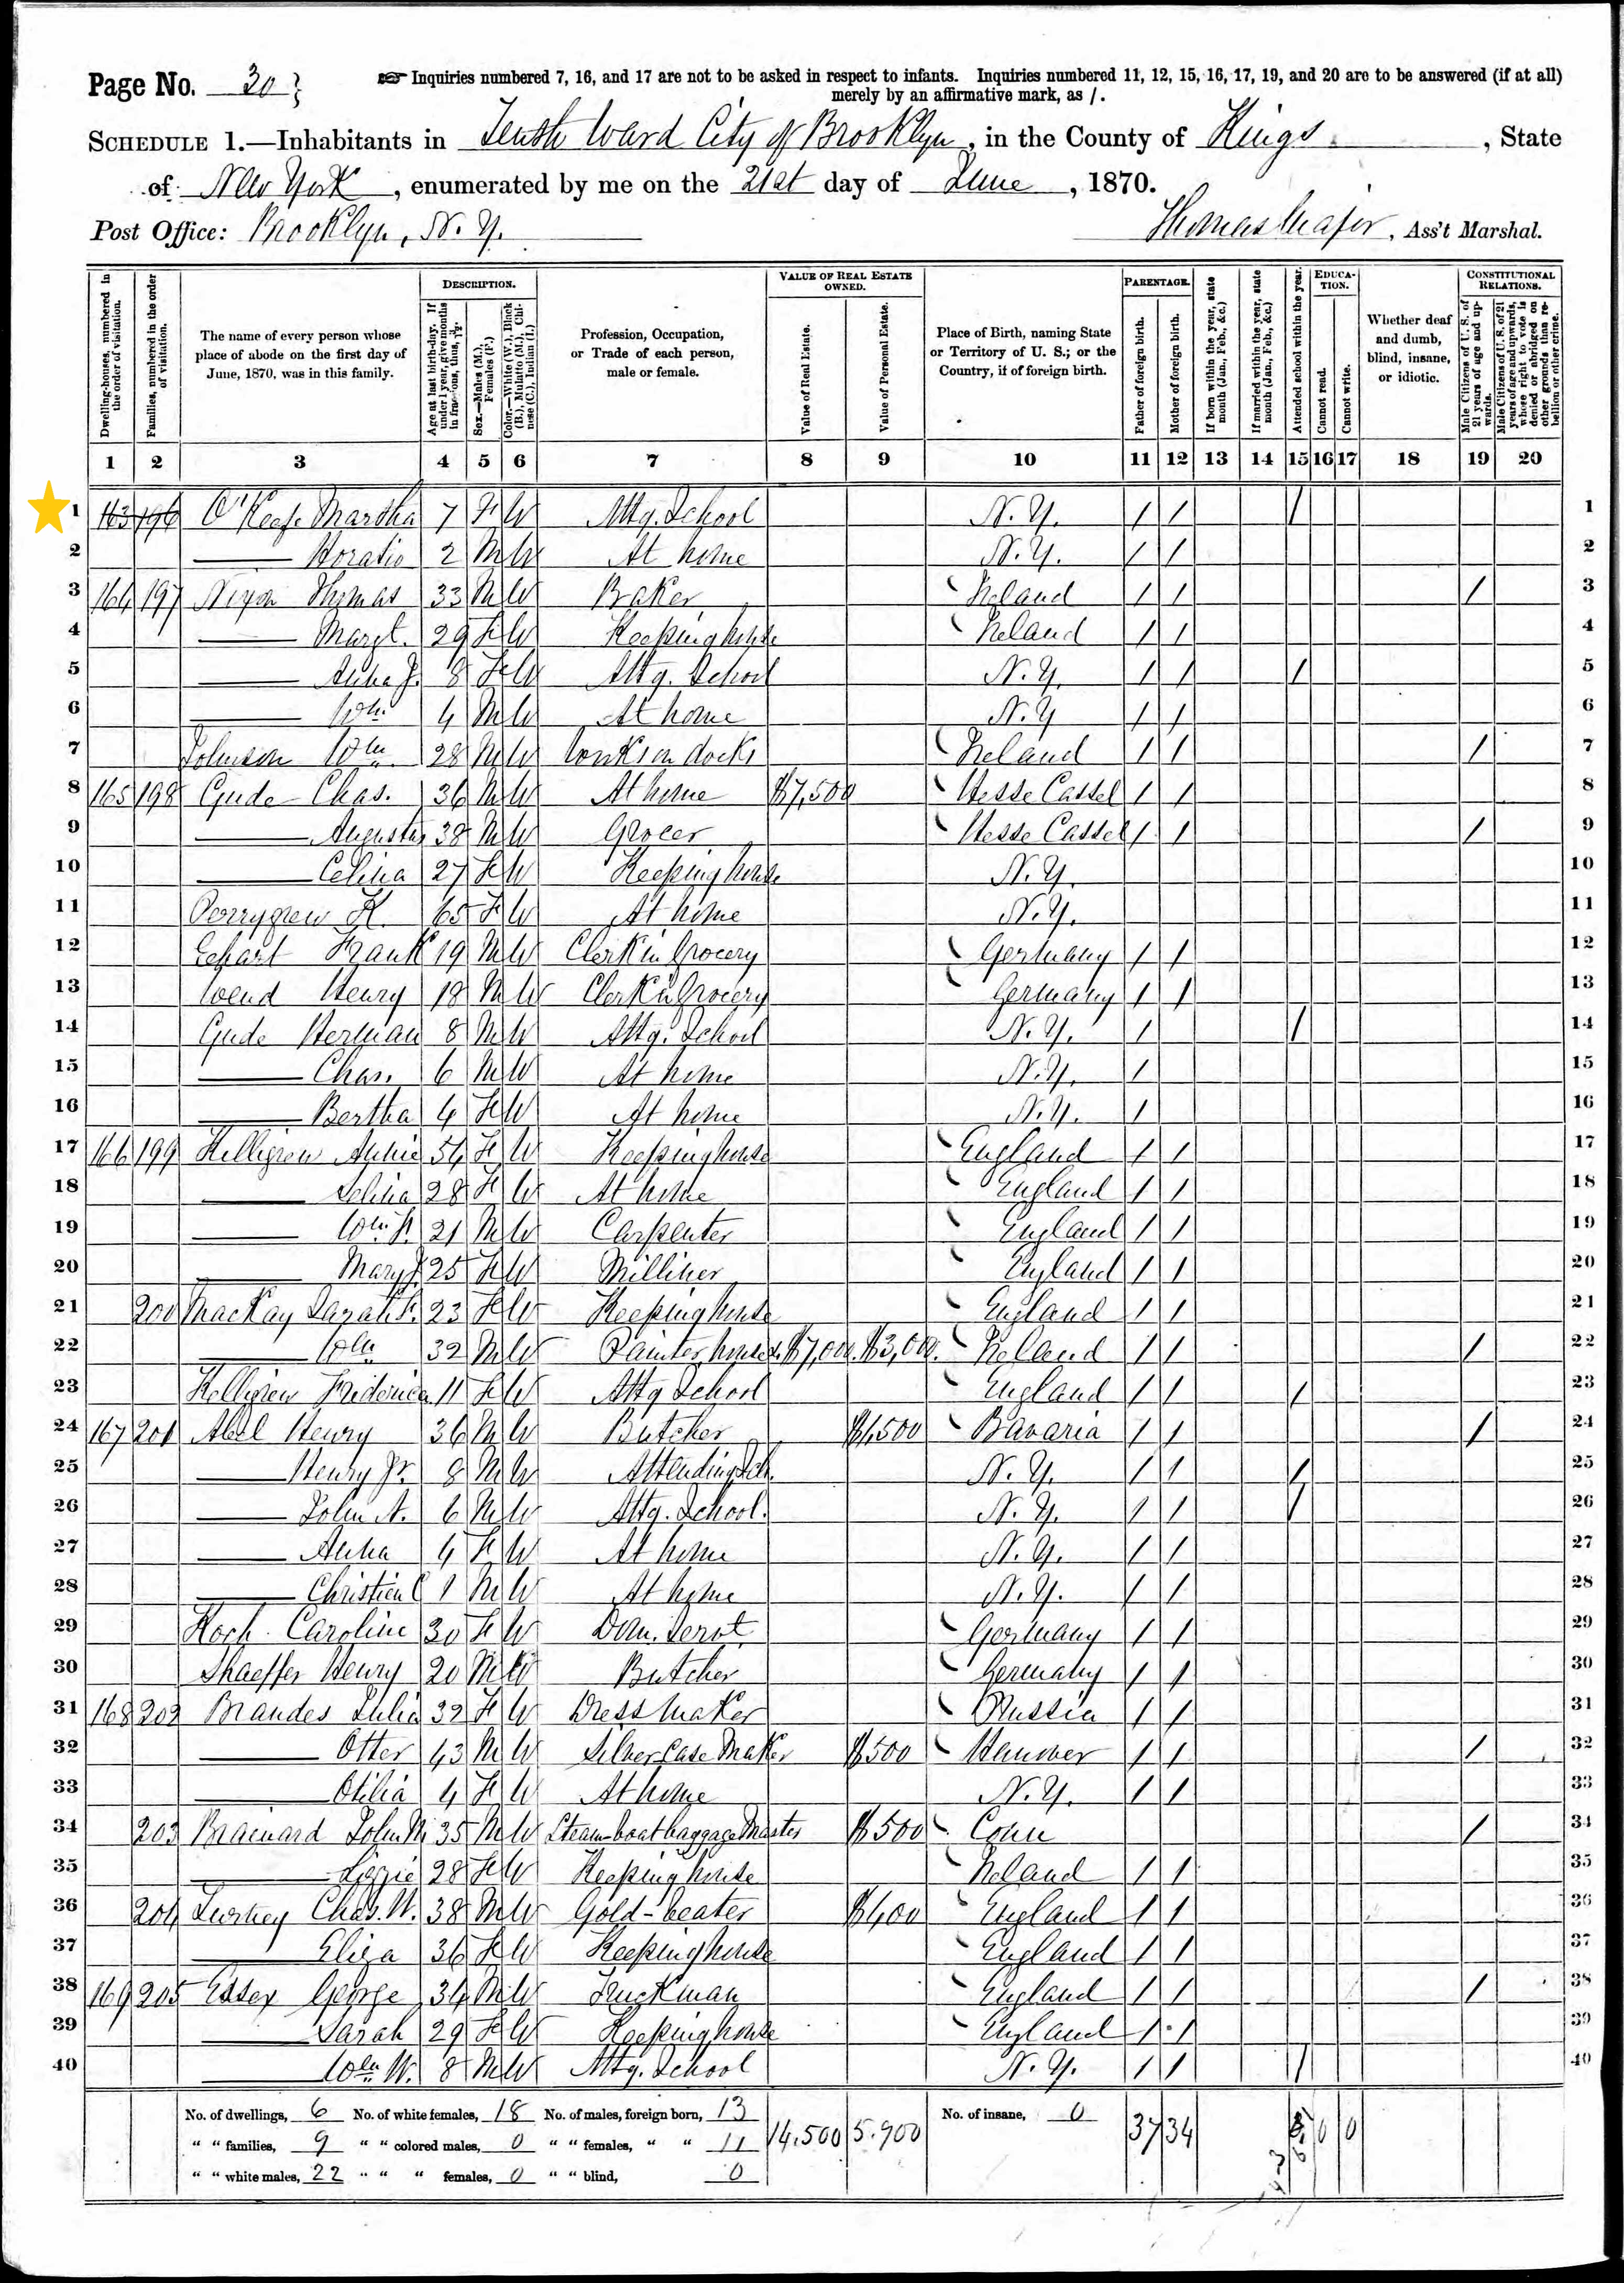 Page No. 30 Inquiries numbered 7, 16, and 17 are not to be asked in respect to infants. Inquiries numbered 11, 12, 15, 16, 17, 19, and 20 are to be answered (if at all)
merely by an affirmative mark, as /.
SCHEDULE 1.—Inhabitants in Tenth Ward City of Brooklyn, in the County of Kings, State
of New York, enumerated by me on the 21st day of June, 1870.
Post Office: Brooklyn, N. Y. Thomas , Ass't Marshal.
Dwelling-houses, numbered in the order of visitation.
Families, numbered in the order of visitation.
The name of every person whose place of abode on the first day of June, 1870, was in this family.
DESCRIPTION.
Age at last birth-day. If under 1 year, give months in fractions, thus,
Sex.—Males (M.), Females (F.)
Color.—White (W.), Black (B.), Mulatto (M.), Chinese (C.), Indian (I.)
Profession, Occupation, or Trade of each person, male or female.
VALUE OF REAL ESTATE OWNED.
Value of Real Estate.
Value of Personal Estate.
Place of Birth, naming State or Territory of U. S.; or the Country, if of foreign birth.
PARENTAGE.
Father of foreign birth.
Mother of foreign birth.
If born within the year, state month (Jan., Feb., &c.)
If married within the year, state month (Jan., Feb., &c.)
Attended school within the year.
EDUCATION.
Cannot read.
Cannot write.
Whether deaf and dumb, blind, insane, or idiotic.
CONSTITUTIONAL RELATIONS.
Male Citizens of U. S. of 21 years of age and upwards.
Male Citizens of U. S. of 21 years of age and upwards, whose right to vote is denied or abridged on other grounds than rebellion or other crime.
1 2 3 4 5 6 7 8 9 10 11 12 13 14 15 16 17 18 19 20
1 163 196 O'Keefe Martha 7 F W Attg. School N. Y. / / / 1
2 —— Horatio 2 M W At home N. Y. / / 2
3 164 197 Nixon Thomas 33 M W Baker Ireland / / / 3
4 —— Margt. 29 F W Keeping house Ireland / / 4
5 —— Anna J. 8 F W Attg. School N. Y. / / / 5
6 —— Wm. 4 M W At home N. Y. / / 6
7 Johnson Wm. 28 M W Works on docks Ireland / / / 7
8 165 198 Gude Chas. 36 M W At home $7,500 Hesse Cassel / / 8
9 —— Augustus 38 M W Grocer Hesse Cassel / / / 9
10 —— Celina 27 F W Keeping house N. Y. 10
11 Perrygrew K. 65 F W At home N. Y. 11
12 Frank 19 M W Clerk in Grocery Germany / / 12
13 Wend Henry 18 M W Clerk in Grocery Germany / / 13
14 Gude Herman 8 M W Attg. School N. Y. / / 14
15 —— Chas. 6 M W At home N. Y. / 15
16 —— Bertha 4 F W At home N. Y. / 16
17 166 199 Killigrew Annie 54 F W Keeping house England / / 17
18 —— Selina 28 F W At home England / / 18
19 —— Wm. 21 M W Carpenter England / / 19
20 —— Mary J. 25 F W Milliner England / / 20
21 200 MacKay Sarah 23 F W Keeping house England / / 21
22 —— Wm 32 M W Painter, house $7,000. $3,000. Ireland / / / 22
23 Killigrew Friderica 11 F W Attg School England / / / 23
24 167 201 Abel Henry 36 M W Butcher $1,500 Bavaria / / / 24
25 —— Henry Jr. 8 M W Attending Sch. N. Y. / / / 25
26 —— John A. 6 M W Attg. School. N. Y. / / / 26
27 —— Anna 4 F W At home N. Y. / / 27
28 —— Christian C 1 M W At home N. Y. / / 28
29 Koch Caroline 30 F W Dom. Servt. Germany / / 29
30 Shaeffer Henry 20 M W Butcher Germany / / 30
31 168 202 Brandes Julia 32 F W Dress Maker Prussia / / 31
32 —— Otter 43 M W Silver Case Maker $500 Hanover / / / 32
33 —— Otilia 4 F W At home N. Y. / / 33
34 203 Brainard John M. 35 M W Steam-boat baggage Master $500 Conn / 34
35 —— Lizzie 28 F W Keeping house Ireland / / 35
36 204 Chas. W. 38 M W Gold-beater $400 England / / 36
37 —— Eliza 36 F W Keeping house England / / 37
38 169 205 Essex George 34 M W Truckman England / / / 38
39 —— Sarah 29 F W Keeping house England / / 39
40 —— Wm W. 8 M W Attg. School N. Y. / / / 40
No. of dwellings, 6 No. of white females, 18 No. of males, foreign born, 13 14,500 5.900 No. of insane, 0 37 34 0 0
" " families, 9 " " colored males, 0 " " females, " " 11
" " white males, 22 " " " females, 0 " " blind, 0